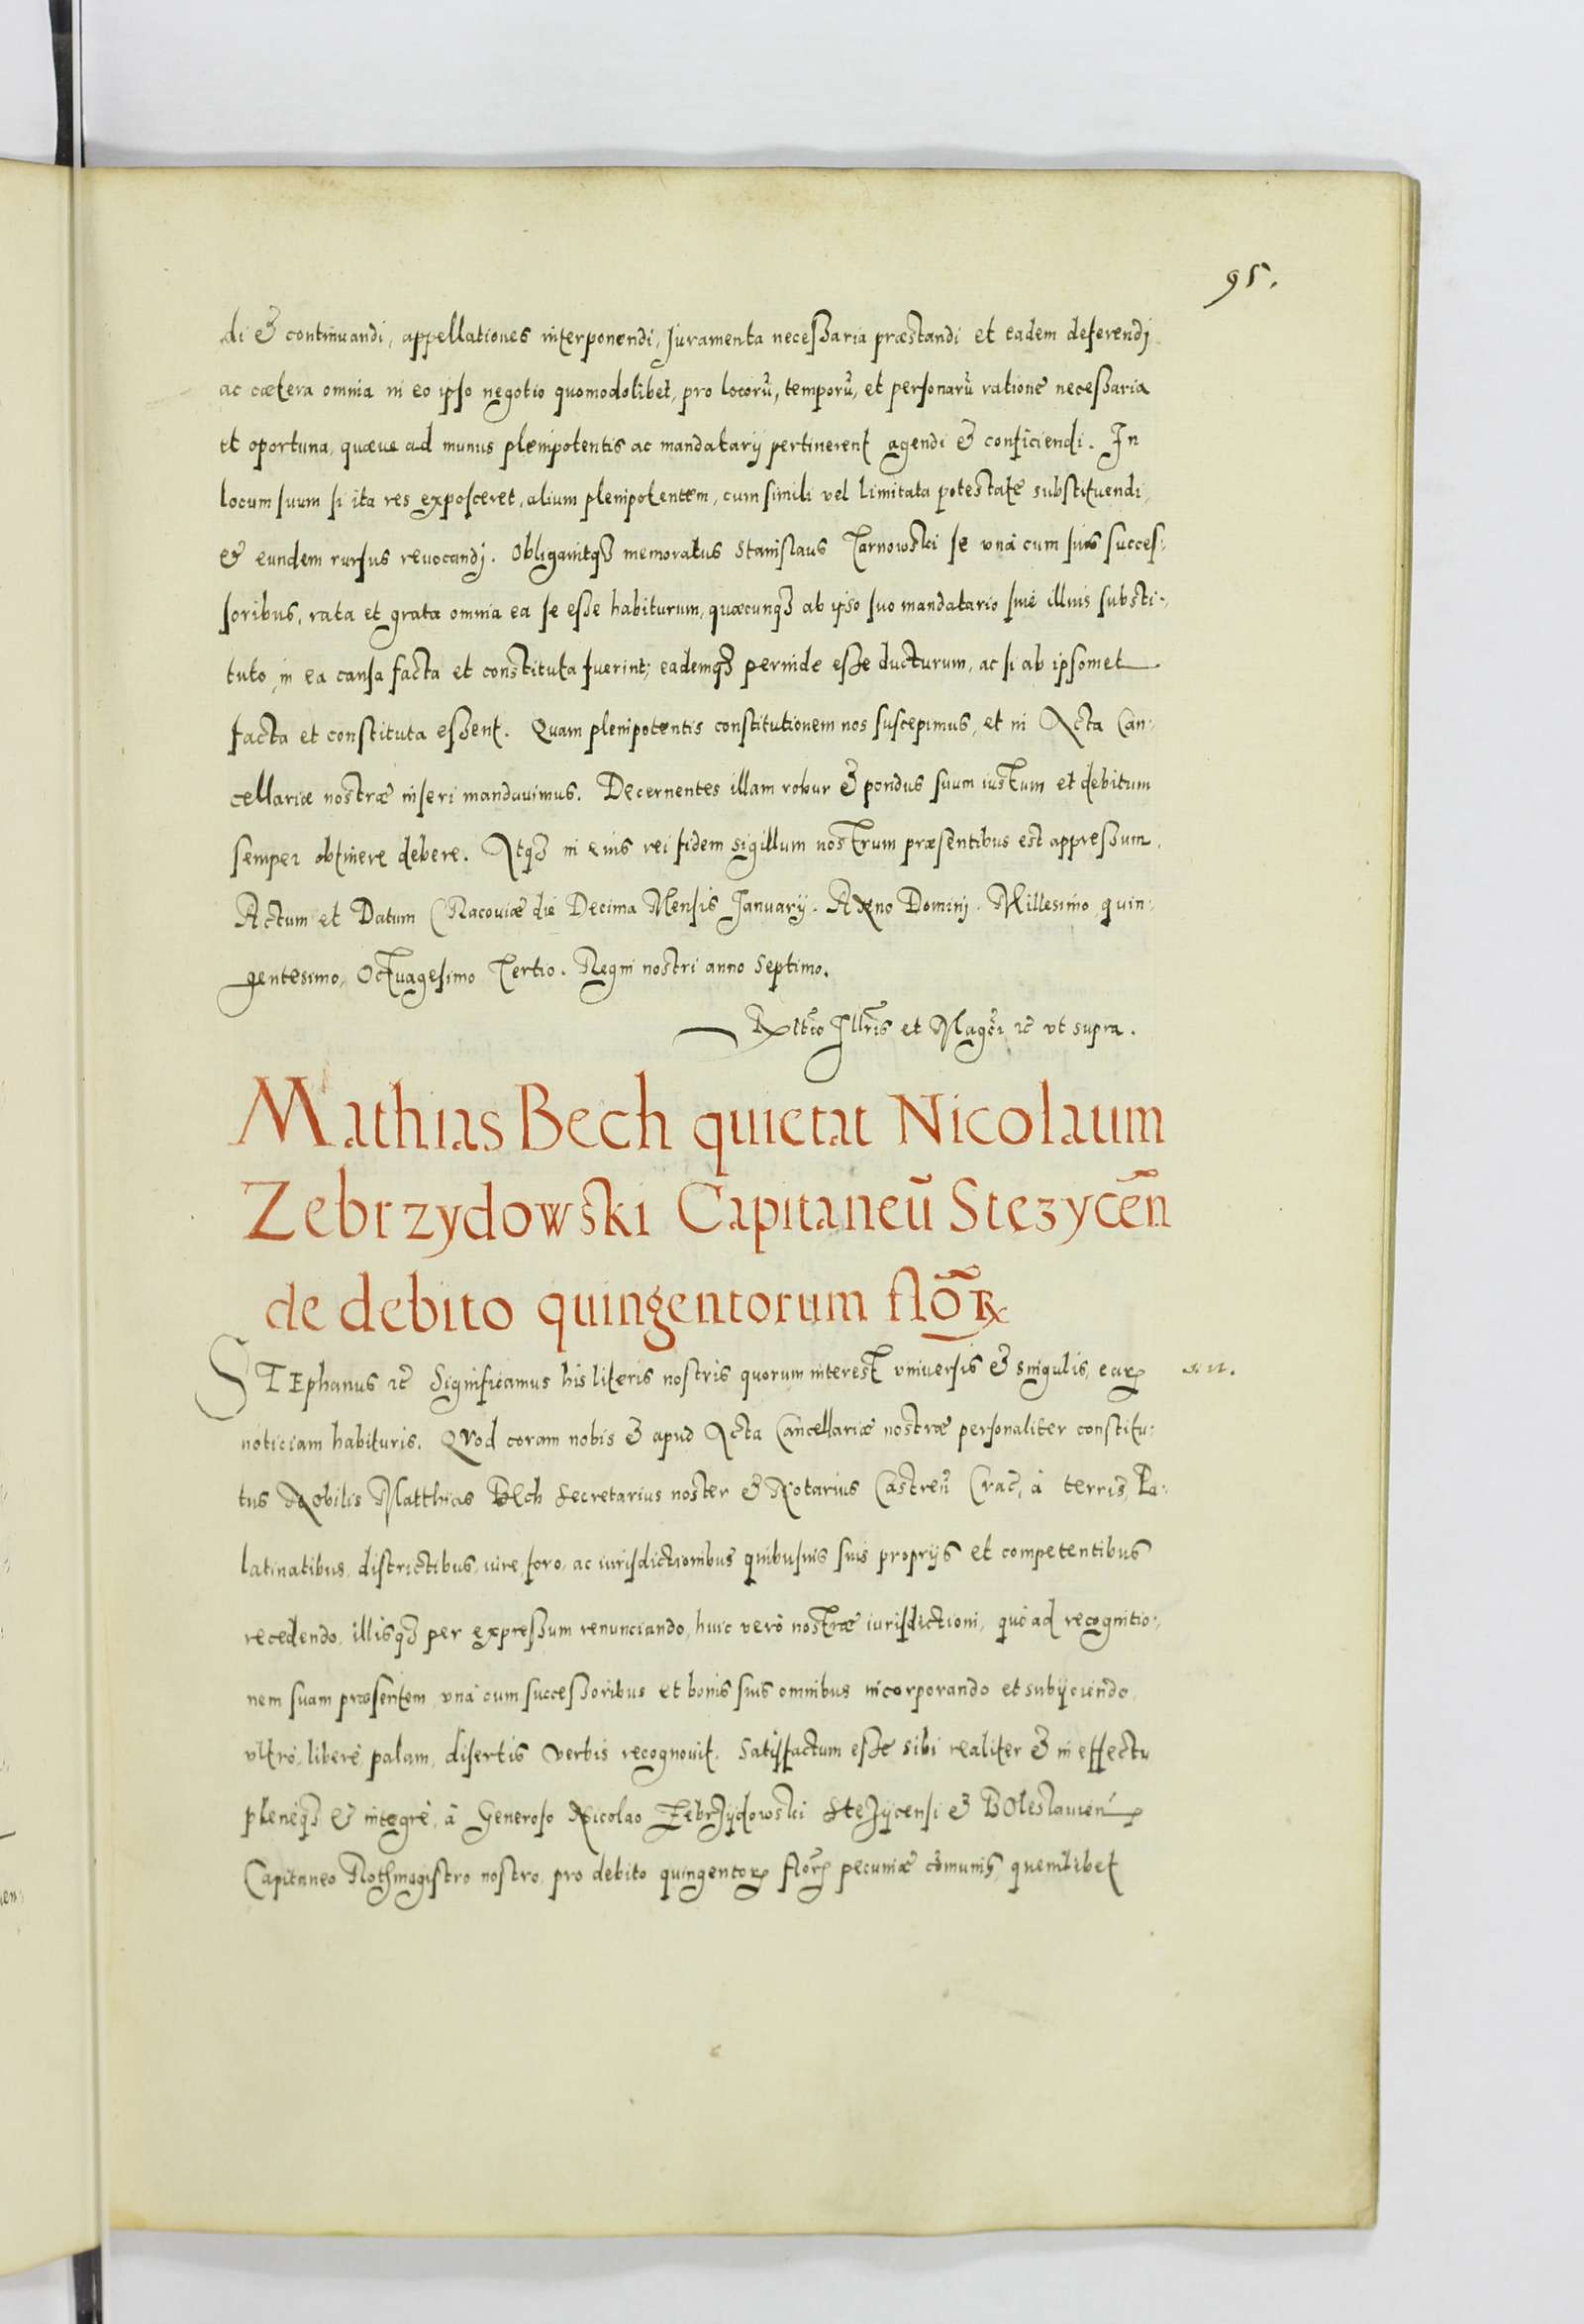 95.
di & continuandi, appellationes interponendi, Juramenta necessaria præstandi et eadem deferendj
ac cætera omnia in eo ipso negotio quomodolibet, pro locorū, temporū, et personarū ratione necessaria
et oportuna, quæue ad munus plenipotentis ac mandatarij pertinerent agendi & conficiendi. In
locum suum si ita res exposceret, alium plenipotentem, cum simili vel limitata potestate substituendi,
& eundem rursus reuocandj. Obligauitqȝ memoratus Stanislaus Tarnowski se vnà cum suis succes:
soribus, rata et grata omnia ea se esse habiturum, quæcunqȝ ab ipso suo mandatario siue illius substi:
tuto, in ea causa facta et constituta fuerint, eademqȝ perinde esse ducturum, ac si ab ipsomet
facta et constituta essent. Quam plenipotentis constitutionem nos suscepimus, et in Acta Can:
cellariæ nostræ inseri mandauimus. Decernentes illam robur & pondus suum iustum et debitum
semper obtinere debere. Atqȝ in eius rei fidem sigillum nostrum præsentibus est appressum.
Actum et Datum Cracouiæ die Decima Mensis Januarij. Anno Dominj. Millesimo quin:
gentesimo, Octuagesimo Tertio. Regni nostri anno septimo.
Rltio Illris et Magci rc vt supra.
Mathias Bech quietat Nicolaum
Zebrzydowski Capitaneū Stezyceñ
de debito quingentorum florꝝ
STEphanus rc Significamus his literis nostris quorum interest vniuersis & singulis, earꝝ
noticiam habituris. QVod coram nobis & apud Acta Cancellariæ nostræ personaliter constitu:
tus Nobilis Matthias BEch Secretarius noster & Notarius Castreñ Crac, à terris, Pa:
latinatibus, districtibus, iure, foro, ac iurisdictionibus quibusuis suis proprijs et competentibus
recedendo, illisqȝ per expressum renunciando, huic verò nostræ iurisdictioni, quò ad recognitio:
nem suam præsentem, vnà cum successoribus et bonis suis omnibus incorporando et subijciendo,
vltrò, liberè, palam, disertis verbis recognouit. Satisfactum esse sibi realiter & in effectu
plenèqȝ & integrè, à Generoso Nicolao Zebrzydowski Stezycensi & BOlestauieñ
Capitaneo Rothmagistro nostro, pro debito quingentorꝝ florꝝ pecuniæ cōmunis, quemlibet